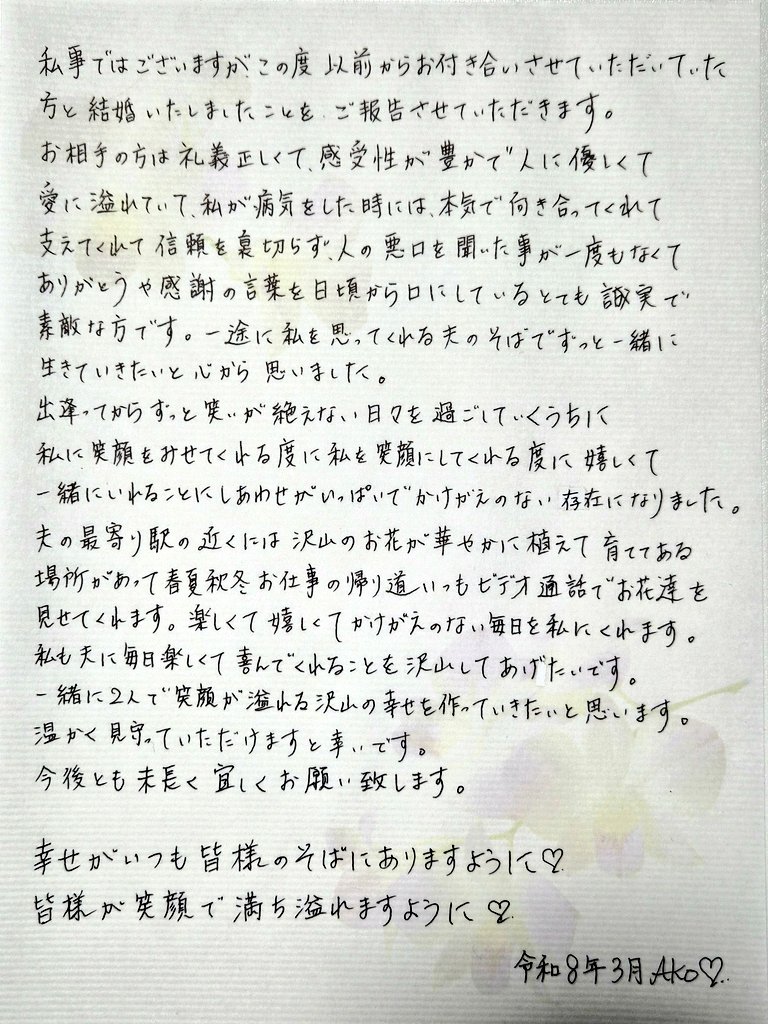 私事ではございますが、この度 以前からお付き合いさせていただいていた
方と結婚いたしましたことを、ご報告させていただきます。
お相手の方は礼義正しくて、感受性が豊かで人に優しくて
愛に溢れていて、私が病気をした時には、本気で向き合ってくれて
支えてくれて信頼を裏切らず、人の悪口を聞いた事が一度もなくて
ありがとうや感謝の言葉を日頃から口にしているとても誠実で
素敵な方です。一途に私を思ってくれる夫のそばでずっと一緒に
生きていきたいと心から思いました。
出逢ってからずっと笑いが絶えない日々を過ごしていくうちに
私に笑顔をみせてくれる度に私を笑顔にしてくれる度に嬉しくて
一緒にいれることにしあわせがいっぱいでかけがえのない存在になりました。
夫の最寄り駅の近くには沢山のお花が華やかに植えて育ててある
場所があって春夏秋冬お仕事の帰り道いつもビデオ通話でお花達を
見せてくれます。楽しくて嬉しくてかけがえのない毎日を私にくれます。
私も夫に毎日楽しくて喜んでくれることを沢山してあげたいです。
一緒に2人で笑顔が溢れる沢山の幸せを作っていきたいと思います。
温かく見守っていただけますと幸いです。
今後とも末長く宜しくお願い致します。
幸せがいつも皆様のそばにありますように♡
皆様が笑顔で満ち溢れますように♡
令和8年3月 AKO♡